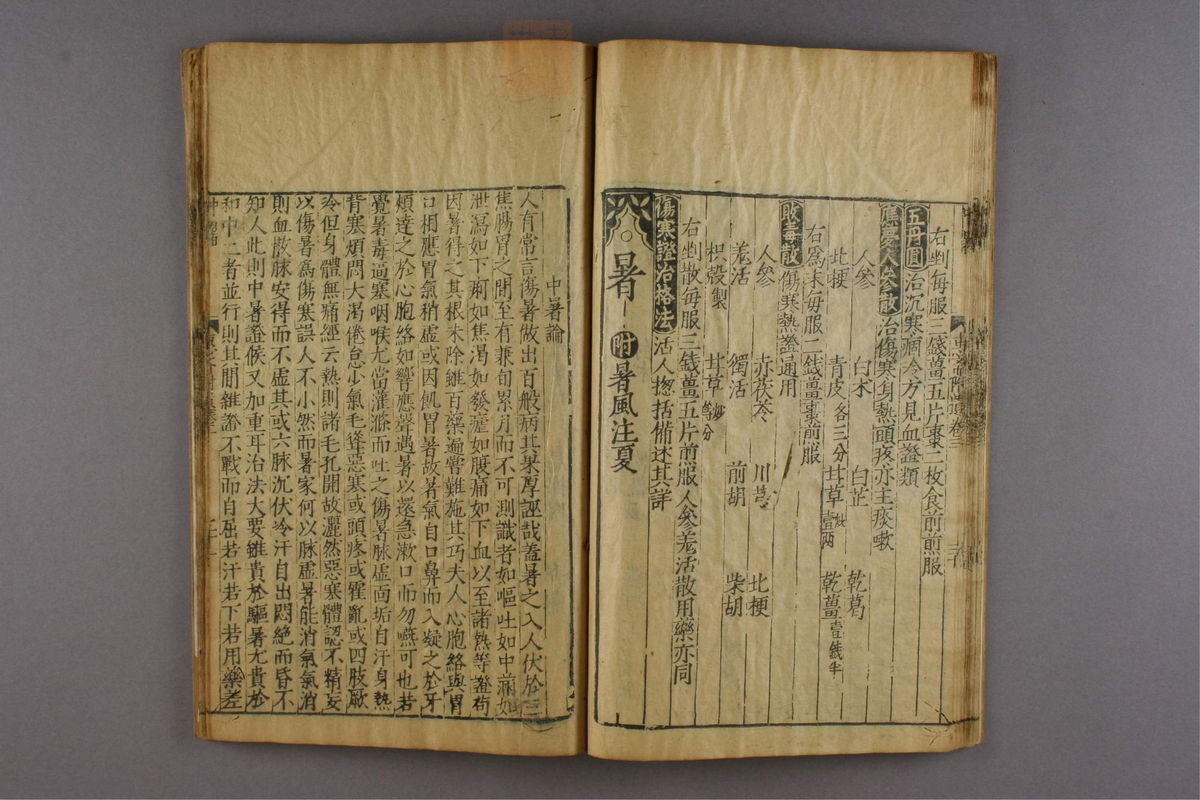 右剉每服三錢薑五片棗二枚食前煎服
五丹圓治沉寒痼冷方見血證類
應夢人參散治傷寒身熱頭疼亦主痰嗽
人參 白朮 白芷 乾葛
北梗 青皮各三分 甘草炒壹兩 乾薑壹錢半
右爲末每服二錢薑棗煎服
敗毒散傷寒熱證通用
人參 赤茯苓 川芎 北梗
羌活 獨活 前胡 柴胡
枳殼製 甘草炒等分
右剉散每服三錢薑五片煎服人參羌活散用藥亦同
傷寒證治格法活人揔括備述其詳
暑 附暑風注夏
中暑論
人有常言傷暑做出百般病其果厚誣哉蓋暑之入人伏於三
焦腸胃之間至有兼旬累月而不可測識者如嘔吐如中滿如
泄瀉如下痢如焦渴如發瘧如腹痛如下血以至諸熱等證苟
因暑得之其根未除雖百藥遍嘗難施其巧夫人心胞絡與胃
口相應胃氣稍虛或因飢冒暑故暑氣自口鼻而入凝之於牙
頰達之於心胞絡如響應聲遇暑以還急漱口而勿嚥可也若
覺暑毒逼塞咽喉尤當灌滌而吐之傷暑脉虛面垢自汗身熱
背寒煩悶大渴倦怠少氣毛聳惡寒或頭疼或霍亂或四肢厥
冷但身體無痛經云熱則諸毛孔開故灑然惡寒體認不精妄
以傷暑爲傷寒誤人不小然而暑家何以脉虛暑能消氣氣消
則血散脉安得而不虛其或六脉沉伏冷汗自出悶絶而昏不
知人此則中暑證候又加重耳治法大要雖貴於驅暑尤貴於
和中二者並行則其間雜證不戰而自屈若汗若下若用藥差